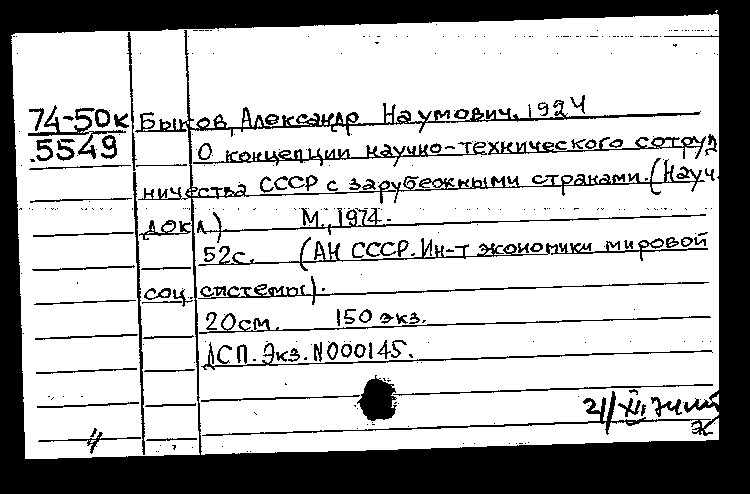 74-50к Быков, Александр Наумович, 1924
5549 О концепции научно-технического сотруд
ничества СССР с зарубежными странами. (Науч.
докл.) М., 1974.
52с. (АН СССР. Ин-т экономики мировой
соц. системы).
20см. 150 экз.
ДСП. Экз. N000145.
21/XII
4